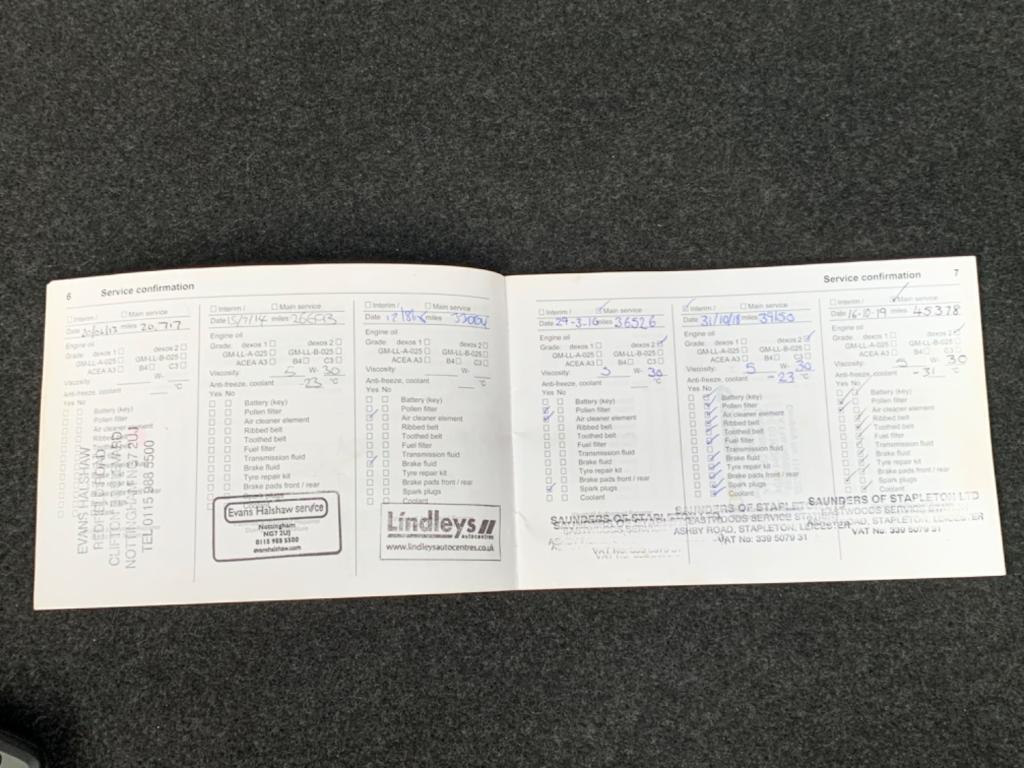 6 Service confirmation
Interim / Main service
Date miles 20,717
Engine oil
Grade: dexos 1 dexos 2
GM-LL-A-025 GM-LL-B-025
ACEA A3 B4 C3
Viscosity: W-
Anti-freeze, coolant °C
Yes No
Battery (key)
Pollen filter
EVANS HALSHAW
NOTTINGHAM NG7 2UJ
TEL 0115 988 5500
Interim / Main service
Date 15/7/14 miles
Engine oil
Grade: dexos 1 dexos 2
GM-LL-A-025 GM-LL-B-025
ACEA A3 B4 C3
Viscosity: 5 W- 30
Anti-freeze, coolant -23 °C
Yes No
Battery (key)
Pollen filter
Air cleaner element
Ribbed belt
Toothed belt
Fuel filter
Transmission fluid
Brake fluid
Tyre repair kit
Brake pads front / rear
Spark plugs
Evans Halshaw service
Nottingham
NG7 2UJ
0115 988 5500
evanshalshaw.com
Interim / Main service
Date miles
Engine oil
Grade: dexos 1 dexos 2
GM-LL-A-025 GM-LL-B-025
ACEA A3 B4 C3
Viscosity: W-
Anti-freeze, coolant °C
Yes No
Battery (key)
Pollen filter
Air cleaner element
Ribbed belt
Toothed belt
Fuel filter
Transmission fluid
Brake fluid
Tyre repair kit
Brake pads front / rear
Spark plugs
Coolant
Lindleys
autocentres
www.lindleysautocentres.co.uk
Service confirmation 7
Interim / Main service
Date 29-3-16 miles 36526
Engine oil
Grade: dexos 1 dexos 2
GM-LL-A-025 GM-LL-B-025
ACEA A3 B4 C3
Viscosity: 5 W- 30
Anti-freeze, coolant °C
Yes No
Battery (key)
Pollen filter
Air cleaner element
Ribbed belt
Toothed belt
Fuel filter
Transmission fluid
Brake fluid
Tyre repair kit
Brake pads front / rear
Spark plugs
Coolant
SAUNDERS OF STAPLETON
Interim / Main service
Date 31/10/18 miles 39150
Engine oil
Grade: dexos 1 dexos 2
GM-LL-A-025 GM-LL-B-025
ACEA A3 B4 C3
Viscosity: 5 W- 30
Anti-freeze, coolant -23 °C
Yes No
Battery (key)
Pollen filter
Air cleaner element
Ribbed belt
Toothed belt
Fuel filter
Transmission fluid
Brake fluid
Tyre repair kit
Brake pads front / rear
Spark plugs
Coolant
SAUNDERS OF STAPLET
EASTWOODS SERVICE
ASHBY ROAD, STAPLETON,
VAT No: 339 5079 31
Interim / Main service
Date 16-10-19 miles 45378
Engine oil
Grade: dexos 1 dexos 2
GM-LL-A-025 GM-LL-B-025
ACEA A3 B4 C3
Viscosity: 5 W- 30
Anti-freeze, coolant -31 °C
Yes No
Battery (key)
Pollen filter
Air cleaner element
Ribbed belt
Toothed belt
Fuel filter
Transmission fluid
Brake fluid
Tyre repair kit
Brake pads front / rear
Spark plugs
Coolant
SAUNDERS OF STAPLETON LTD
EASTWOODS SERVICE
ROAD, STAPLETON, LEICESTER
VAT No: 339 5079 31